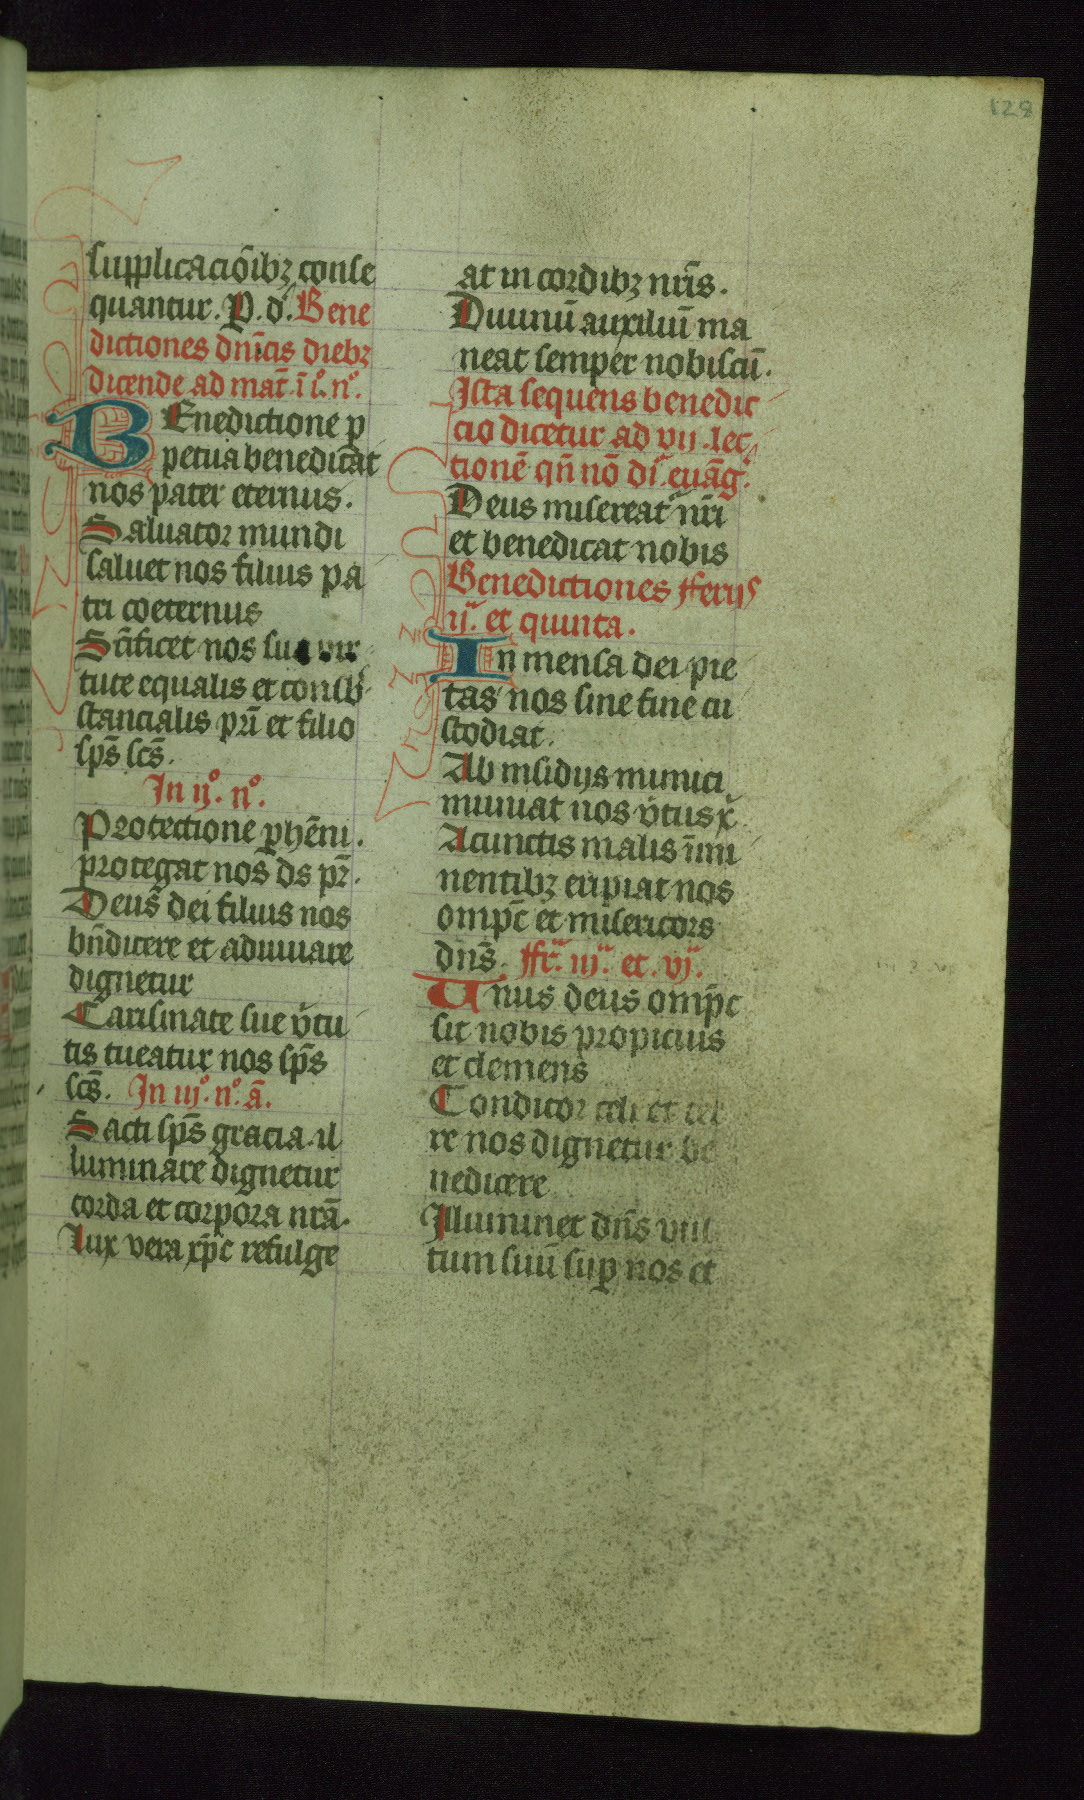 128
supplicacōibꝫ conse
quantur. P. d. Bene
dictiones dnīcis diebꝫ
dicende ad mat̄. ī i°. n°.
BEnedictione ꝑ
petua benedicat
nos pater eternus.
Saluator mundi
saluet nos filius pa
tri coeternus
Sc̄ificet nos sua vir
tute equalis et consb̄
stancialis pr̄i et filio
sp̄s sc̄s.
In ij°. n°.
Protectione ꝑhēni.
protegat nos ds pr̄.
Deus dei filius nos
bn̄dicere et adiuuare
dignetur
Carismate sue v̄tu
tis tueatur nos sp̄s
sc̄s. In iij°. n°. ā.
Sācti sp̄s gracia il
luminare dignetur
corda et corpora nr̄ā.
Lux vera xp̄c refulge
at in cordibꝫ nr̄is.
Diuinū auxiliū ma
neat semper nobiscū.
Ista sequens benedic
cio dicetur ad vij lec
tionē qn̄ nō dr̄ euāg.
Deus misereat̄ nr̄i
et benedicat nobis
Benedictiones fferijs
ij. et quinta.
In mensa dei pie
tas nos sine fine cu
stodiat.
Ab insidijs inimici
muniat nos v̄tus x̄
A cunctis malis īmi
nentibꝫ eripiat nos
omp̄c et misericors
dn̄s. ffr̄. iij. et. vj.
Unus deus omp̄c
sit nobis propicius
et clemens
Conditor celi et ter
re nos dignetur be
nedicere
Illuminet dn̄s vul
tum suū suꝑ nos et